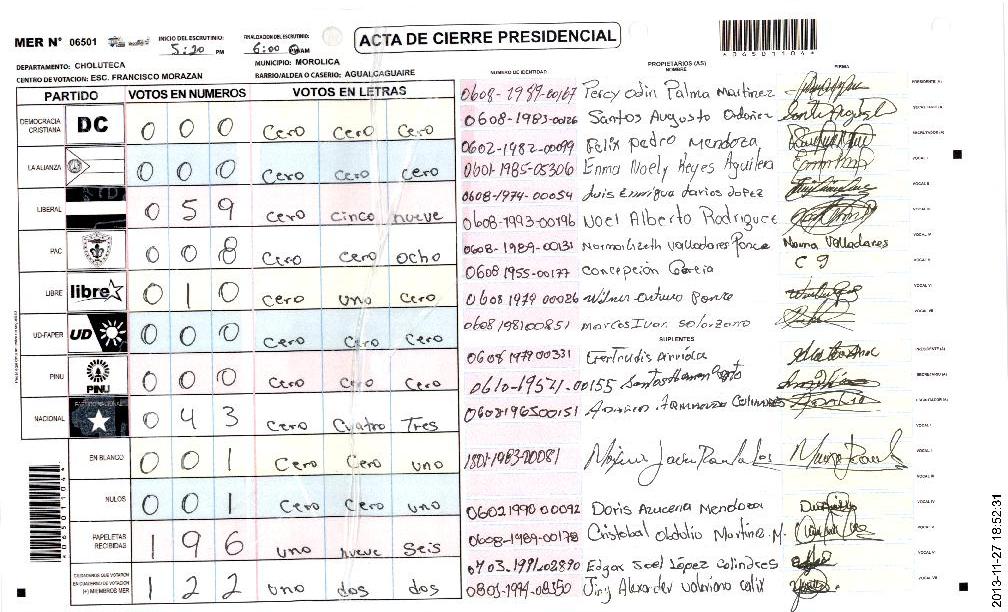 MER Nº 06501
INICIO DEL ESCRUTINIO: 5:20 PM
FINALIZACION DEL ESCRUTINIO: 6:00 PM AM
ACTA DE CIERRE PRESIDENCIAL
*06501104*
DEPARTAMENTO: CHOLUTECA
MUNICIPIO: MOROLICA
CENTRO DE VOTACION: ESC. FRANCISCO MORAZAN
BARRIO/ALDEA O CASERIO: AGUALCAGUAIRE
PARTIDO VOTOS EN NUMEROS VOTOS EN LETRAS
DEMOCRACIA CRISTIANA DC 0 0 0 cero cero cero
LA ALIANZA 0 0 0 cero cero cero
LIBERAL 0 5 9 cero cinco nueve
PAC 0 0 8 cero cero ocho
LIBRE libre 0 1 0 cero uno cero
UD-FAPER UD 0 0 0 cero cero cero
PINU PINU 0 0 0 cero cero cero
NACIONAL 0 4 3 cero cuatro Tres
EN BLANCO 0 0 1 cero cero uno
NULOS 0 0 1 cero cero uno
PAPELETAS RECIBIDAS 1 9 6 uno nueve seis
CIUDADANOS QUE VOTARON EN CUADERNO DE VOTACION (+) MIEMBROS MER 1 2 2 uno dos dos
*06501104*
NUMERO DE IDENTIDAD PROPIETARIOS (AS) NOMBRE FIRMA
0608-1989-00167 Percy Odin Palma Martinez PRESIDENTE (A)
0608-1983-00126 Santos Augusto Ordoñez SECRETARIO (A)
0602-1982-00099 Felix pedro Mendoza ESCRUTADOR (A)
0601-1985-05306 Enma Noely Reyes Aguilera VOCAL I
0608-1974-00054 Luis Enrrique darios Lopez VOCAL II
0608-1993-00196 Noel Alberto Rodriguez VOCAL III
0608-1989-00131 Norma lizeth valladares Ponce Norma Valladares VOCAL IV
0608 1955-00177 concepción Garcia C g VOCAL V
0608 1979 00026 Wilmer Arturo Ponce VOCAL VI
0608 1981 00851 marcos Ivan Solorzano VOCAL VII
SUPLENTES
0608 1977 00331 Gertrudis Arriola PRESIDENTE (A)
0610-19571-00155 SECRETARIO (A)
0608196500151 ESCRUTADOR (A)
VOCAL I
1801-1983-00081 VOCAL II
VOCAL III
0602 1990 00092 Doris Azucena Mendoza VOCAL IV
0608-1989-00178 Cristobal Martinez M. VOCAL V
0703-1991-02890 Edgar Joel López Colindres VOCAL VI
0801-1994-08350 Alexander VOCAL VII
2013-11-27 18:52:31